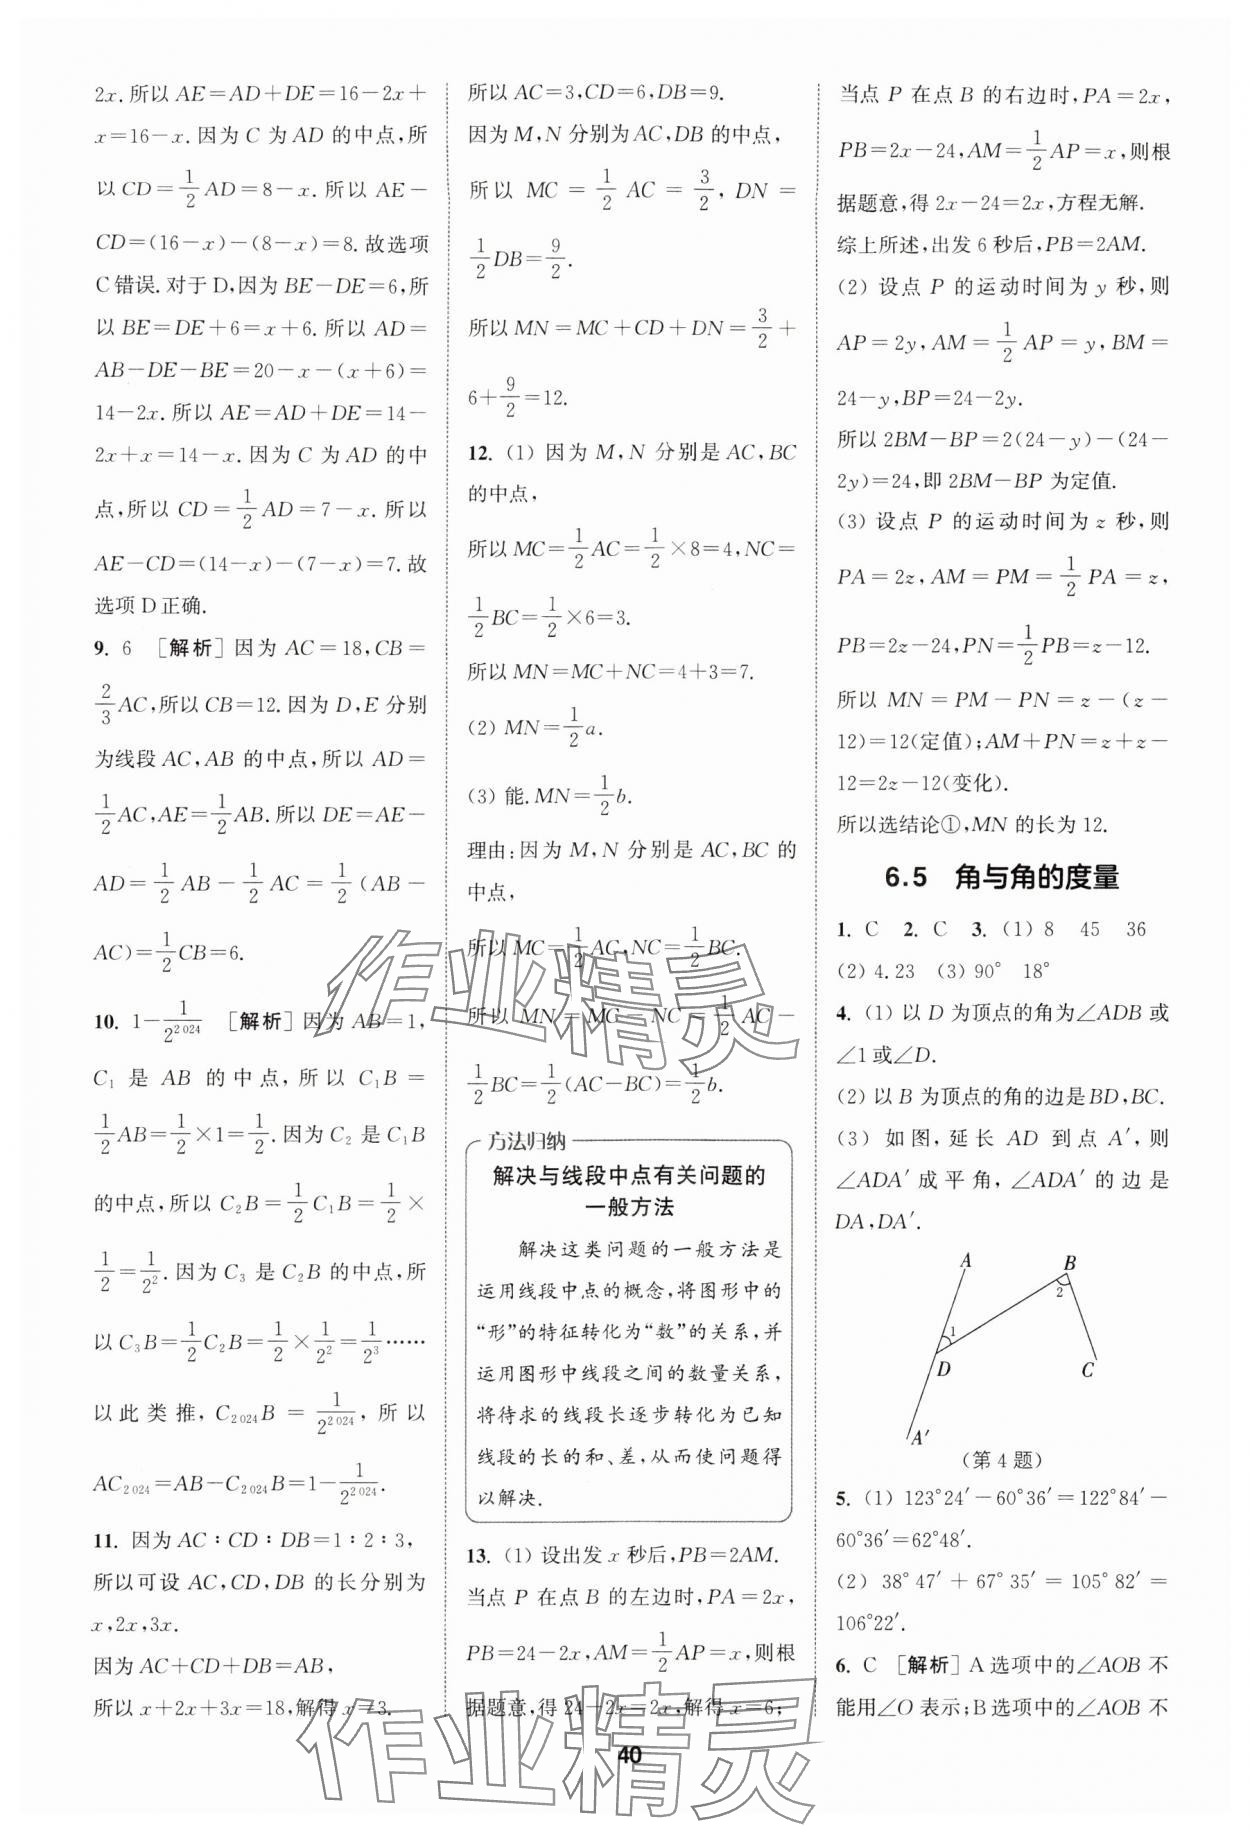 2x.所以 AE=AD+DE=16-2x+
x=16-x.因为 C 为 AD 的中点,所
以 CD=1/2 AD=8-x.所以 AE-
CD=(16-x)-(8-x)=8.故选项
C 错误.对于 D,因为 BE-DE=6,所
以 BE=DE+6=x+6.所以 AD=
AB-DE-BE=20-x-(x+6)=
14-2x.所以 AE=AD+DE=14-
2x+x=14-x.因为 C 为 AD 的中
点,所以 CD=1/2 AD=7-x.所以
AE-CD=(14-x)-(7-x)=7.故
选项 D 正确.
9. 6 [解析]因为 AC=18,CB=
2/3 AC,所以 CB=12.因为 D,E 分别
为线段 AC,AB 的中点,所以 AD=
1/2 AC,AE=1/2 AB.所以 DE=AE-
AD=1/2 AB-1/2 AC=1/2(AB-
AC)=1/2 CB=6.
10. 1-1/2^2024 [解析]因为 AB=1,
C₁ 是 AB 的中点,所以 C₁B=
1/2 AB=1/2×1=1/2.因为 C₂ 是 C₁B
的中点,所以 C₂B=1/2 C₁B=1/2×
1/2=1/2².因为 C₃ 是 C₂B 的中点,所
以 C₃B=1/2 C₂B=1/2×1/2²=1/2³……
以此类推,C₂₀₂₄B=1/2^2024,所以
AC₂₀₂₄=AB-C₂₀₂₄B=1-1/2^2024.
11. 因为 AC∶CD∶DB=1∶2∶3,
所以可设 AC,CD,DB 的长分别为
x,2x,3x.
因为 AC+CD+DB=AB,
所以 x+2x+3x=18,解得 x=3.
所以 AC=3,CD=6,DB=9.
因为 M,N 分别为 AC,DB 的中点,
所以 MC=1/2 AC=3/2,DN=
1/2 DB=9/2.
所以 MN=MC+CD+DN=3/2+
6+9/2=12.
12. (1) 因为 M,N 分别是 AC,BC
的中点,
所以 MC=1/2 AC=1/2×8=4,NC=
1/2 BC=1/2×6=3.
所以 MN=MC+NC=4+3=7.
(2) MN=1/2 a.
(3) 能.MN=1/2 b.
理由:因为 M,N 分别是 AC,BC 的
中点,
所以 MC=1/2 AC,NC=1/2 BC.
所以 MN=MC-NC=1/2 AC-
1/2 BC=1/2(AC-BC)=1/2 b.
方法归纳
解决与线段中点有关问题的
一般方法
解决这类问题的一般方法是
运用线段中点的概念,将图形中的
“形”的特征转化为“数”的关系,并
运用图形中线段之间的数量关系,
将待求的线段长逐步转化为已知
线段的长的和、差,从而使问题得
以解决.
13. (1) 设出发 x 秒后,PB=2AM.
当点 P 在点 B 的左边时,PA=2x,
PB=24-2x,AM=1/2 AP=x,则根
据题意,得 24-2x=2x,解得 x=6;
当点 P 在点 B 的右边时,PA=2x,
PB=2x-24,AM=1/2 AP=x,则根
据题意,得 2x-24=2x,方程无解.
综上所述,出发 6 秒后,PB=2AM.
(2) 设点 P 的运动时间为 y 秒,则
AP=2y,AM=1/2 AP=y,BM=
24-y,BP=24-2y.
所以 2BM-BP=2(24-y)-(24-
2y)=24,即 2BM-BP 为定值.
(3) 设点 P 的运动时间为 z 秒,则
PA=2z,AM=PM=1/2 PA=z,
PB=2z-24,PN=1/2 PB=z-12.
所以 MN=PM-PN=z-(z-
12)=12(定值);AM+PN=z+z-
12=2z-12(变化).
所以选结论①,MN 的长为 12.
6.5 角与角的度量
1. C 2. C 3. (1) 8 45 36
(2) 4.23 (3) 90° 18°
4. (1) 以 D 为顶点的角为∠ADB 或
∠1或∠D.
(2) 以 B 为顶点的角的边是BD,BC.
(3) 如图,延长 AD 到点 A′,则
∠ADA′成平角,∠ADA′的边是
DA,DA′.
A
B
2
1
D
C
A′
(第 4 题)
5. (1) 123°24′-60°36′=122°84′-
60°36′=62°48′.
(2) 38°47′+67°35′=105°82′=
106°22′.
6. C [解析]A 选项中的∠AOB 不
能用∠O 表示;B 选项中的∠AOB 不
40
作业精灵
作业精灵